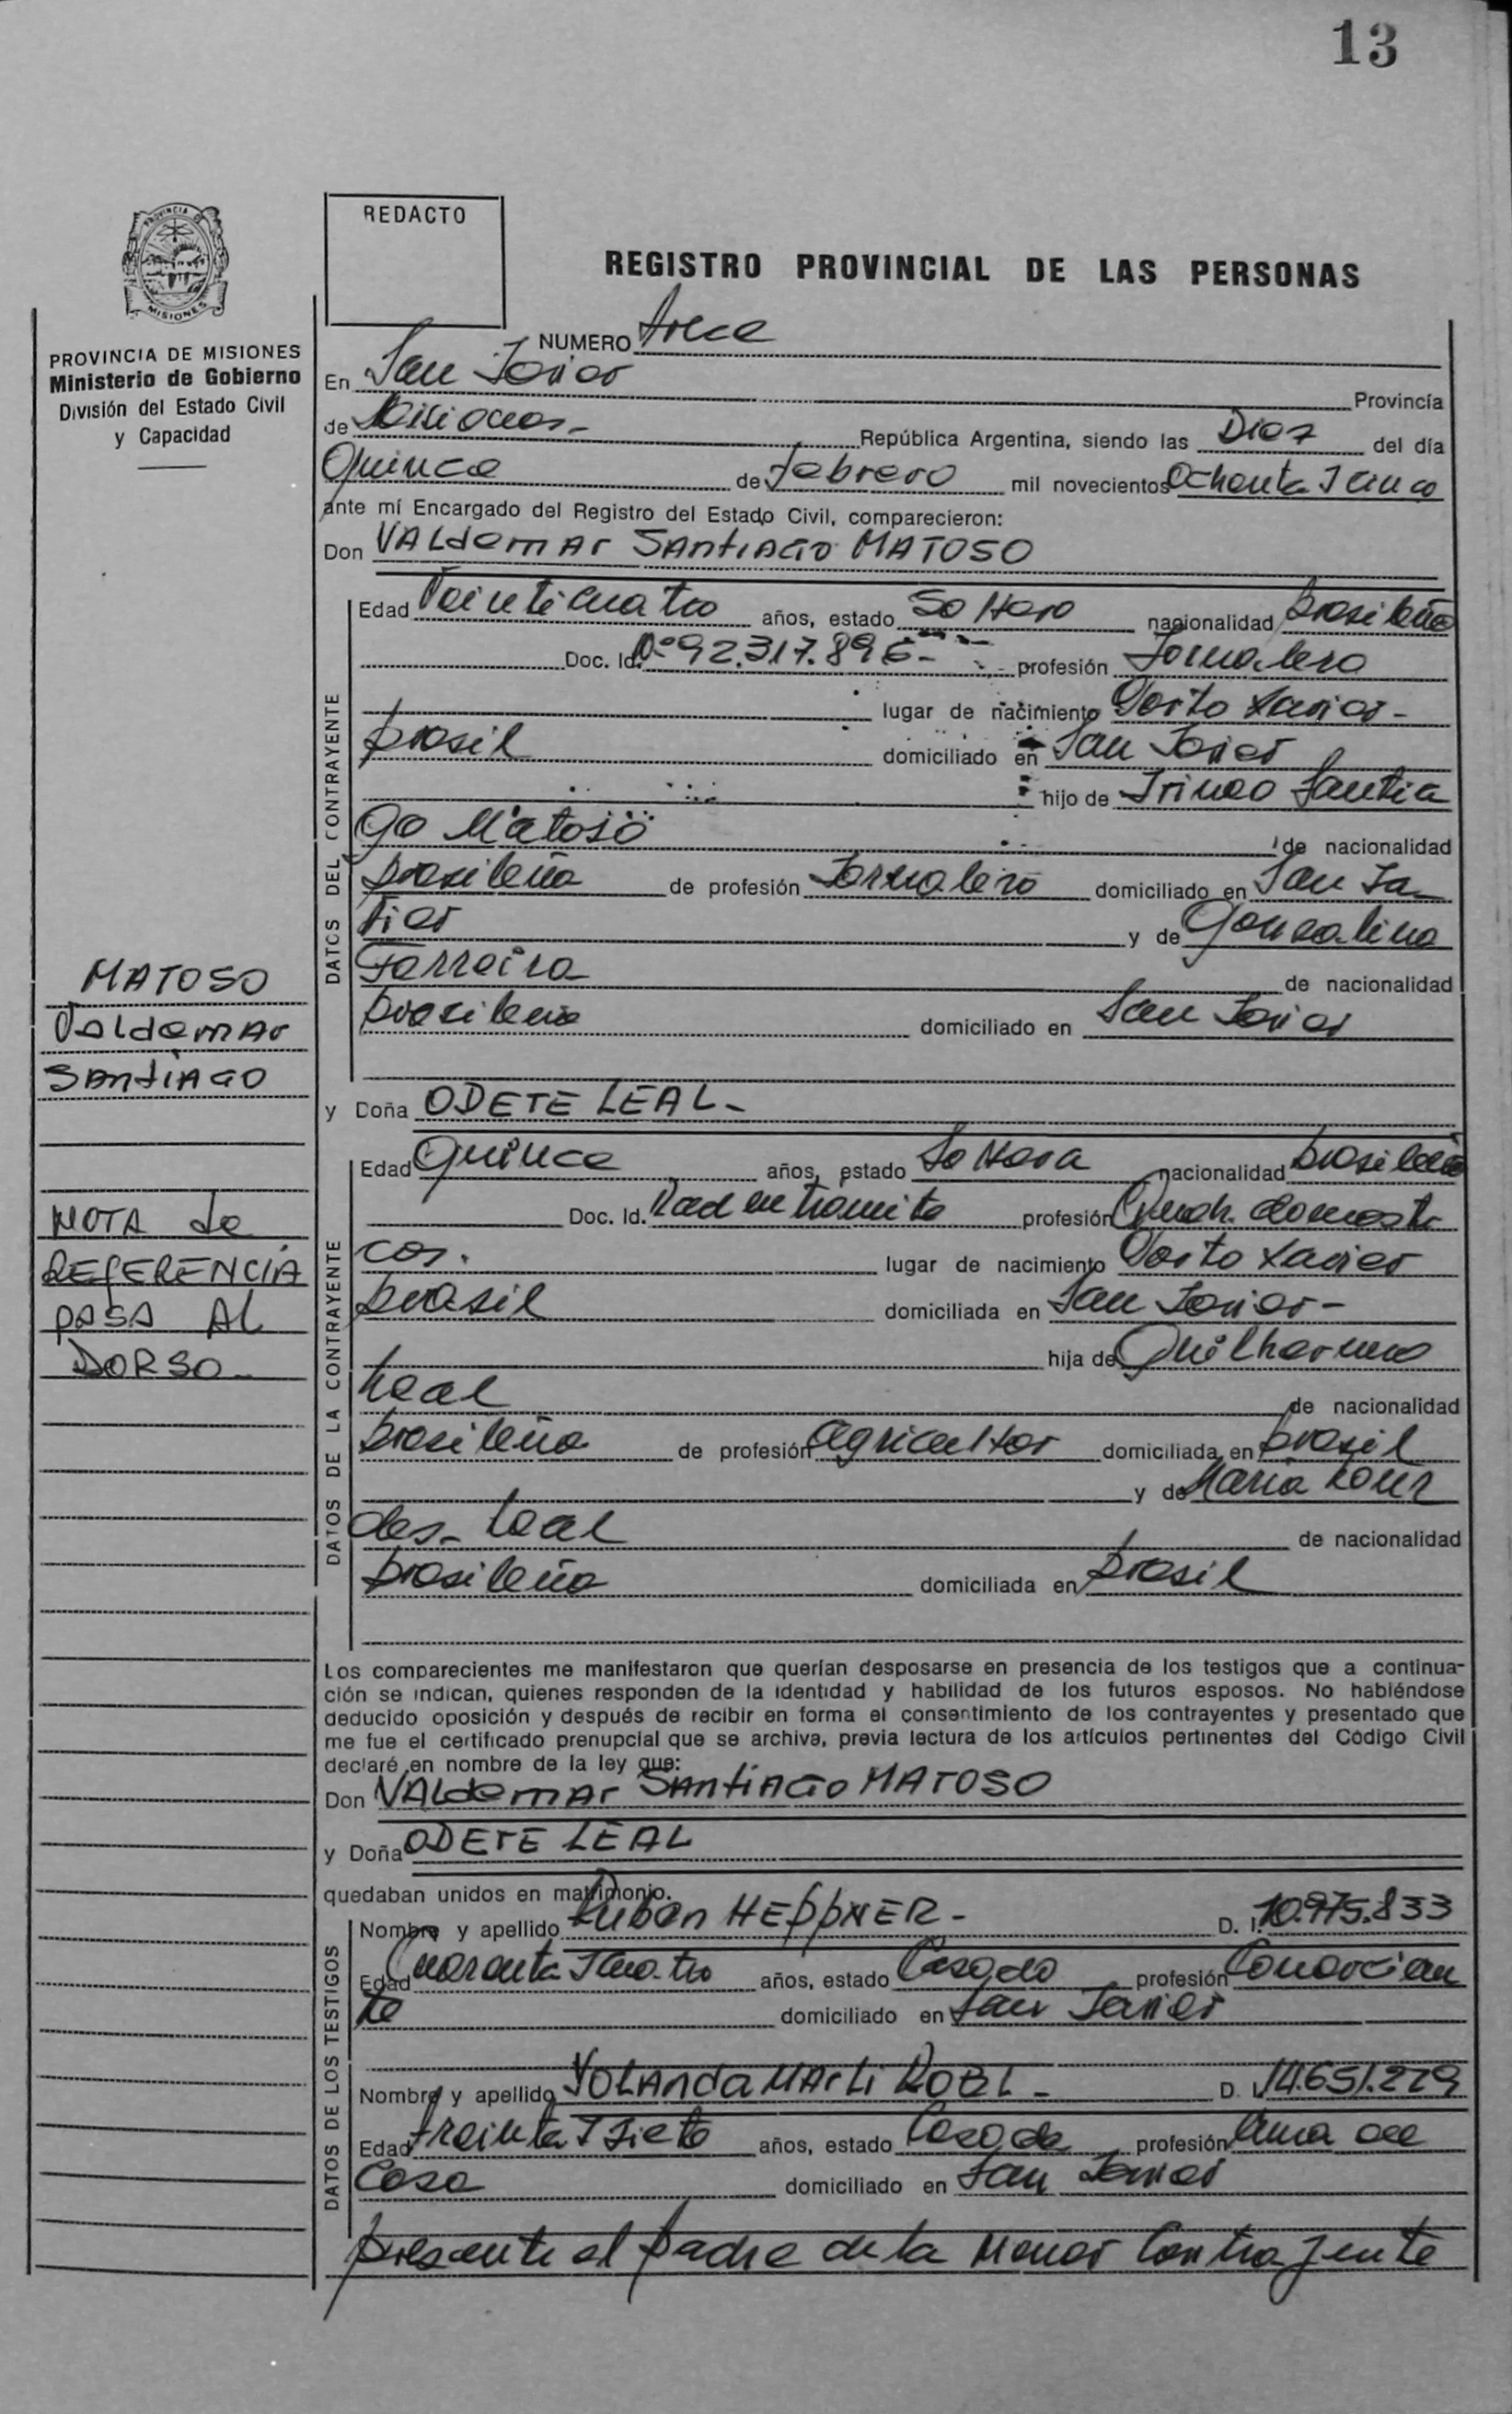 13
REDACTO
REGISTRO PROVINCIAL DE LAS PERSONAS
MISIONES
PROVINCIA DE MISIONES
Ministerio de Gobierno
División del Estado Civil
y Capacidad
NUMERO trece
En San Javier Provincia
de Misiones.- República Argentina, siendo las Diez del día
Quince de febrero mil novecientos Ochenta y cinco
ante mí Encargado del Registro del Estado Civil, comparecieron:
Don VALdemAr SAntiAGo MATOSO
DATOS DEL CONTRAYENTE
Edad Veinticuatro años, estado Soltero nacionalidad brasileña
Doc. Id. Nº 92.317.896- profesión Jornalero
lugar de nacimiento Porto Xavier-
brasil domiciliado en San Javier
hijo de Irineo Santia
go Matoso de nacionalidad
brasileña de profesión Jornalero domiciliado en San Ja-
vier y de Gonsalina
Ferreira de nacionalidad
brasileña domiciliado en San Javier
MATOSO
ValdemAr
SAntiAGo
NOTA de
REFERENCIA
PASA AL
DORSO-
y Doña ODETE LEAL-
DATOS DE LA CONTRAYENTE
Edad Quince años, estado Soltera nacionalidad brasileña
Doc. Id. Rad en tramite profesión Queh. domesti
cos. lugar de nacimiento Porto Xavier
brasil domiciliada en San Javier-
hija de Guilherme
Leal de nacionalidad
brasileña de profesión agricultor domiciliada en brasil
y de Maria Lour
des- Leal de nacionalidad
brasileña domiciliada en brasil
Los comparecientes me manifestaron que querían desposarse en presencia de los testigos que a continua-
ción se indican, quienes responden de la identidad y habilidad de los futuros esposos. No habiéndose
deducido oposición y después de recibir en forma el consentimiento de los contrayentes y presentado que
me fue el certificado prenupcial que se archiva, previa lectura de los artículos pertinentes del Código Civil
declaré en nombre de la ley que:
Don VALdemAr SAntiAGo MATOSO
y Doña ODETE LEAL
quedaban unidos en matrimonio.
DATOS DE LOS TESTIGOS
Nombre y apellido Ruben HEppNER- D. I. 10.975.833
Edad Cuarenta y cuatro años, estado Casado profesión Comercian
te domiciliado en San Javier
Nombre y apellido YOLAndA MArLi ROBL- D. I. 14.651.279
Edad treinta y siete años, estado Casada profesión Ama de
Casa domiciliado en San Javier
presente el padre de la Menor Contrayente